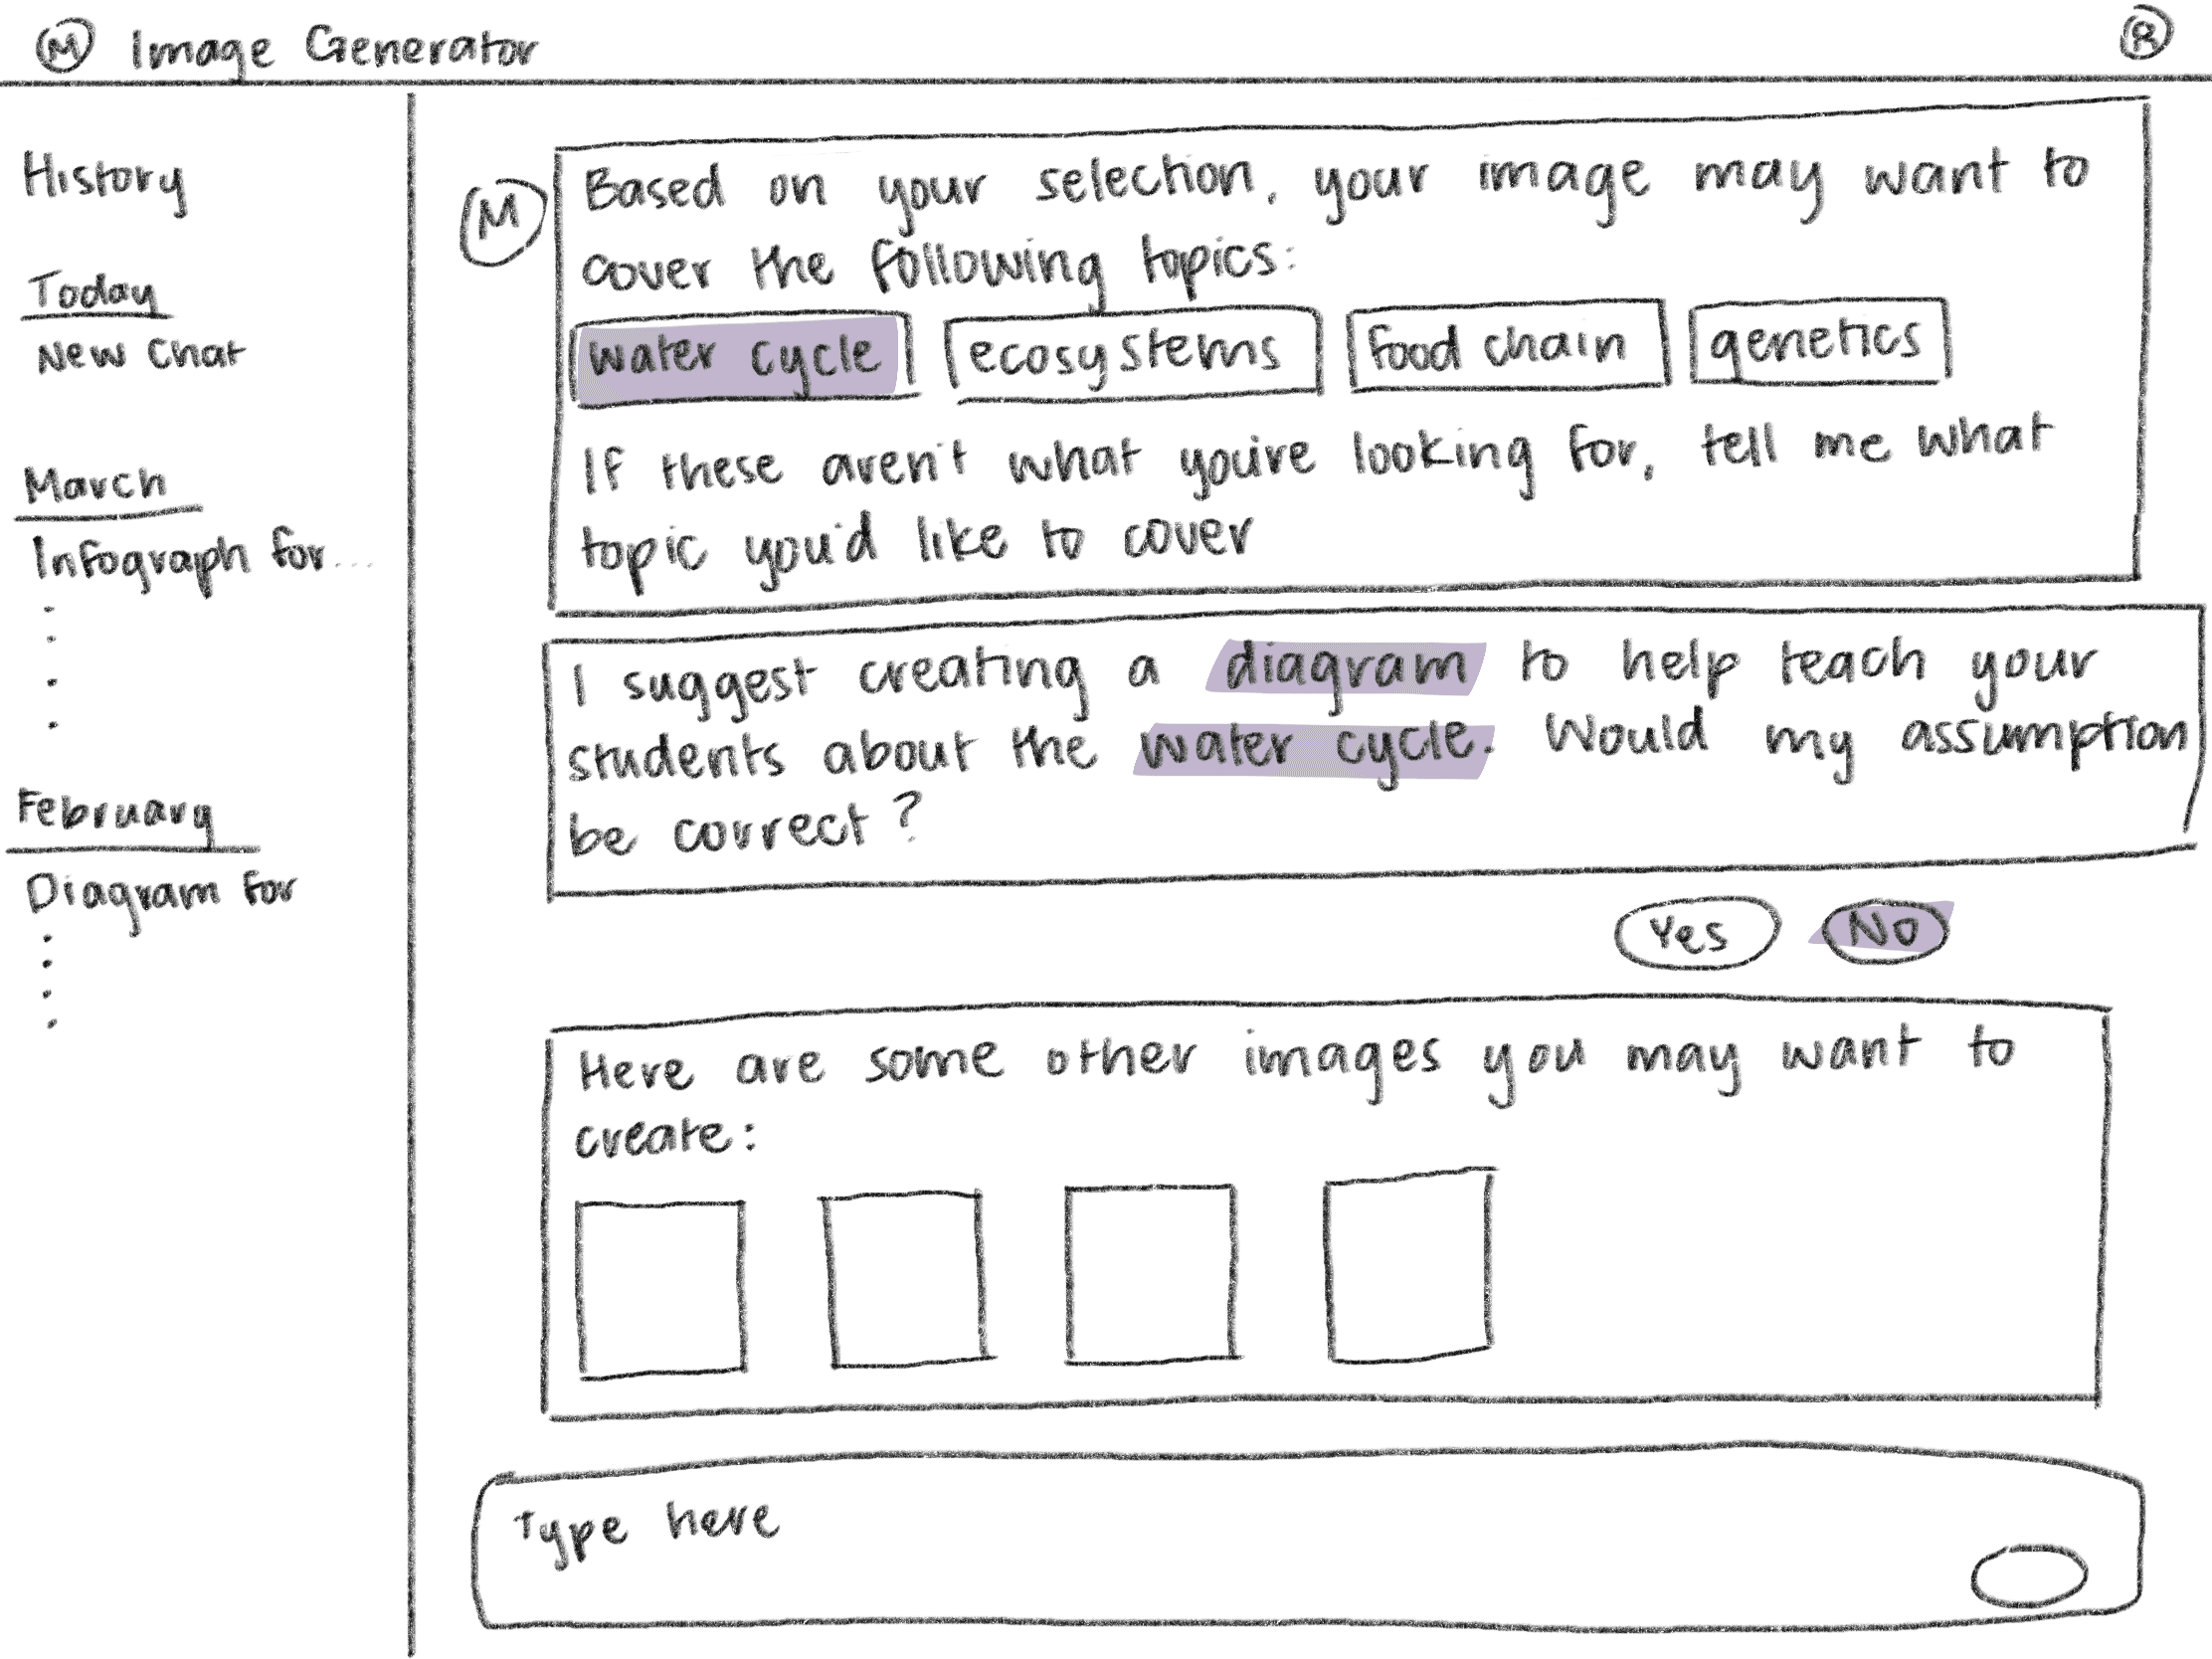 M Image Generator
R
History
Today
New Chat
March
Infograph for...
February
Diagram for
M
Based on your selection, your image may want to
cover the following topics:
water cycle ecosystems food chain genetics
If these aren't what you're looking for, tell me what
topic you'd like to cover
I suggest creating a diagram to help teach your
students about the water cycle. Would my assumption
be correct?
Yes No
Here are some other images you may want to
create:
Type here